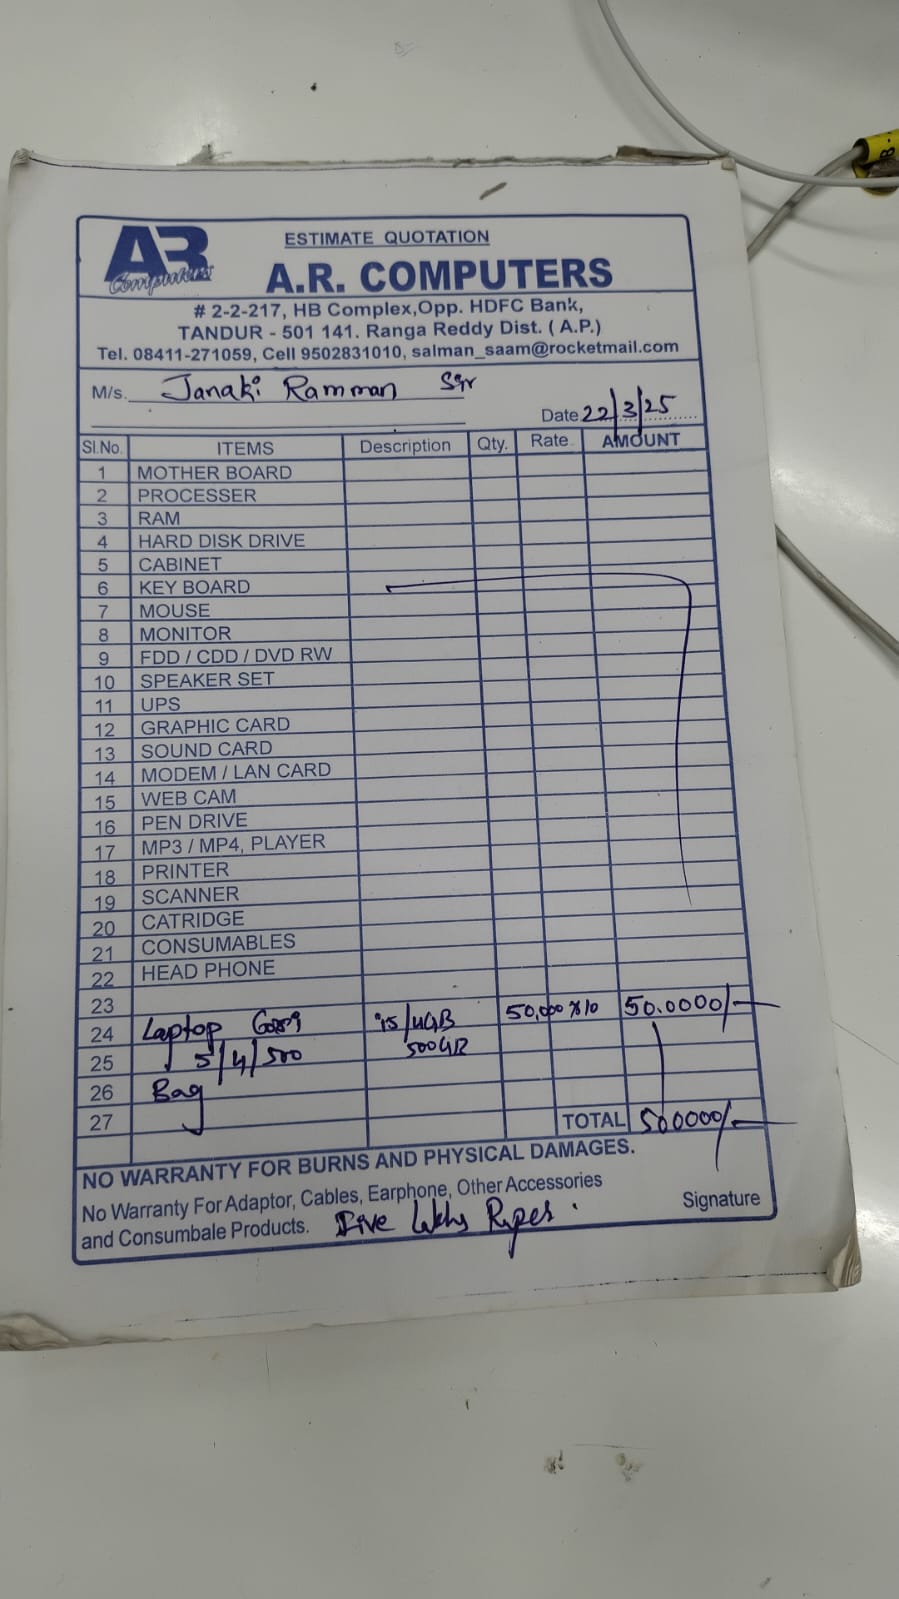 AR
Computers
ESTIMATE QUOTATION
A.R. COMPUTERS
# 2-2-217, HB Complex,Opp. HDFC Bank,
TANDUR - 501 141. Ranga Reddy Dist. ( A.P.)
Tel. 08411-271059, Cell 9502831010, salman_saam@rocketmail.com
M/s. Janaki Ramman Sir
Date 22/3/25
Sl.No. ITEMS Description Qty. Rate AMOUNT
1 MOTHER BOARD
2 PROCESSER
3 RAM
4 HARD DISK DRIVE
5 CABINET
6 KEY BOARD
7 MOUSE
8 MONITOR
9 FDD / CDD / DVD RW
10 SPEAKER SET
11 UPS
12 GRAPHIC CARD
13 SOUND CARD
14 MODEM / LAN CARD
15 WEB CAM
16 PEN DRIVE
17 MP3 / MP4, PLAYER
18 PRINTER
19 SCANNER
20 CATRIDGE
21 CONSUMABLES
22 HEAD PHONE
23
24 Laptop i5/4GB 50,000 x10 50.0000/-
25 5/4/500 500GB
26 Bag
27 TOTAL 500000/-
NO WARRANTY FOR BURNS AND PHYSICAL DAMAGES.
No Warranty For Adaptor, Cables, Earphone, Other Accessories
and Consumbale Products. Five
Signature